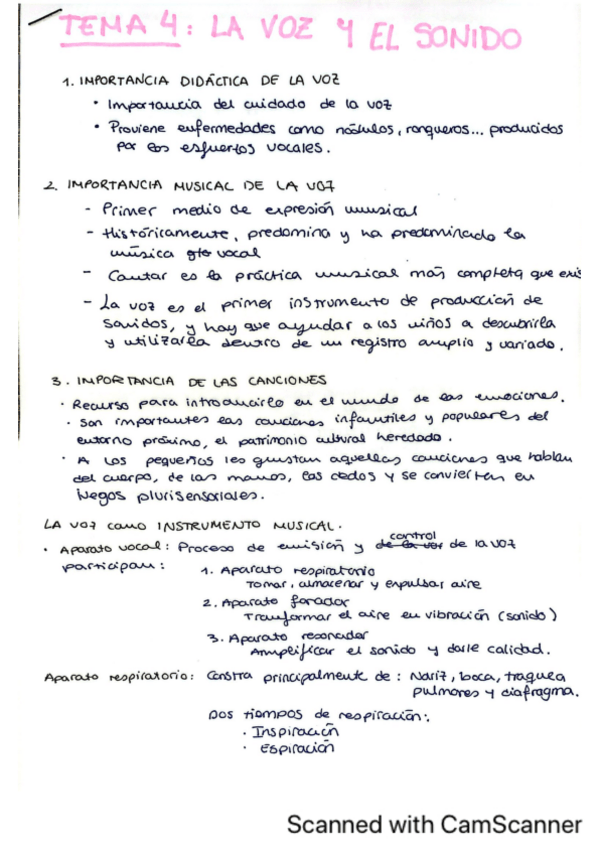 TEMA 4: LA VOZ Y EL SONIDO
1. IMPORTANCIA DIDÁCTICA DE LA VOZ
• Importancia del cuidado de la voz
• Proviene enfermedades como nódulos, ronqueros... producidos
por los esfuertos vocales.
2. IMPORTANCIA MUSICAL DE LA VOZ
- Primer medio de expresión musical
- Históricamente, predomina y ha predominado la
música vocal
- Cantar es la práctica musical más completa que exis
- La voz es el primer instrumento de producción de
sonidos, y hay que ayudar a los niños a descubrirla
y utilizarla dentro de un registro amplio y variado.
3. IMPORTANCIA DE LAS CANCIONES
• Recurso para introducirlo en el mundo de las emociones.
• Son importantes las canciones infantiles y populares del
entorno próximo, el patrimonio cultural heredado.
• A los pequeños les gustan aquellas canciones que hablan
del cuerpo, de las manos, los dedos y se convierten en
juegos plurisensoriales.
LA VOZ como INSTRUMENTO MUSICAL.
• Aparato vocal: Proceso de emisión y control de la voz
participan:
1. Aparato respiratorio
Tomar, almacenar y expulsar aire
2. Aparato fonador
Transformar el aire en vibración (sonido)
3. Aparato resonador
Amplificar el sonido y darle calidad.
Aparato respiratorio: Consta principalmente de: Nariz, boca, traquea
pulmones y diafragma.
Dos tiempos de respiración:
• Inspiración
• Espiración
Scanned with CamScanner